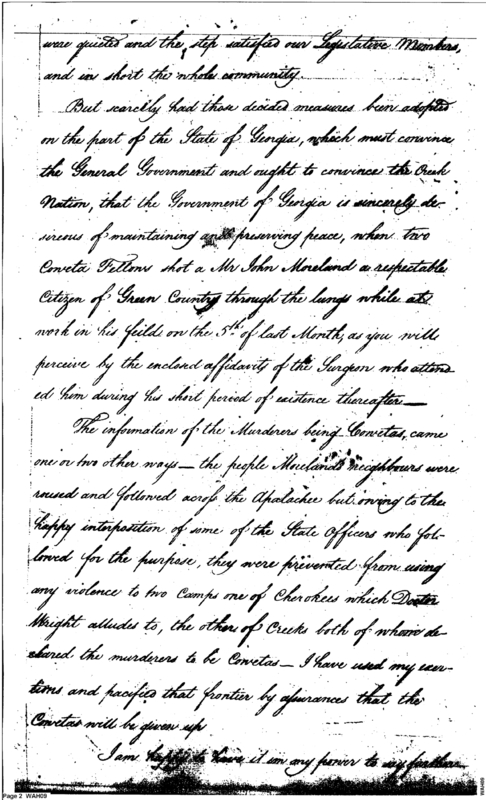 were quieted and the step satisfied our Legislative Members,
and in short the whole community
But scarcely had those decided measures been adopted
on the part of the State of Georgia, which must convince
the General Government and ought to convince the Creek
Nation, that the Government of Georgia is sincerely de-
sireous of maintaining and preserving peace, when two
Coweta Fellows shot a Mr John Moreland a respectable
Citizen of Green County through the lungs while at
work in his feild on the 5th of last Month, as you will
perceive by the enclosed affidavits of the Surgeon who attend
ed him during his short period of existence thereafter —
The information of the Murderers being Cowetas, came
one or two other ways — the people Morelands neighbours were
roused and followed across the Apalachee but owing to the
happy interposition of some of the State Officers who fol-
lowed for the purpose, they were prevented from using
any violence to two Camps one of Cherokees which Doctor
Wright alludes to, the others of Creeks both of whom de-
clared the murderers to be Cowetas — I have used my exer-
tions and pacified that frontier by assurances that the
Cowetas will be given up
I am happy to have it in my power to say further
Page 2 WAH09
WAH09